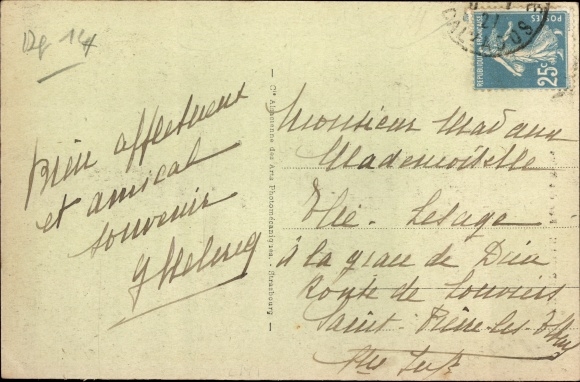 Dép 14
Bien affectueux
et amical
souvenir
Cie Alsacienne des Arts Photomécaniques. - Strasbourg
REPUBLIQUE FRANÇAISE
POSTES
25c
Monsieur Madame
Mademoiselle
Elie - Lesage
à la grace de Dieu
Route de Louviers
Saint-Pierre-les-